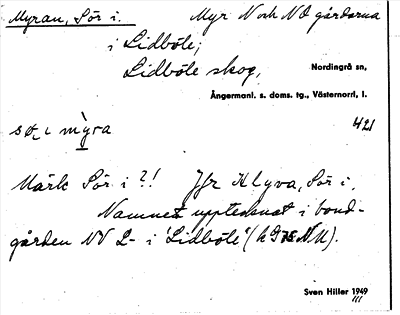 Myran, Sör i. Myr N och NO gårdarna
i Lidböle;
Lidböle skog,
Nordingrå sn,
Ångermanl. s. doms. tg., Västernorrl, l.
421
sø̨ ɩ mỳra
Märk Sör i ?! Jfr Klyva, Sör i,
Namnet upptecknat i bond-
gården NV 2- i "Lidböle" (
Sven Hiller 1949
III